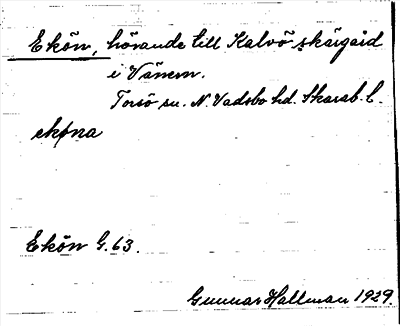 Ekön, hörande till Kalvö skärgård
i Vänern.
Torsö sn. N. Vadsbo hd. Skarab. l.
ekøna
Ekön G. 63.
Gunnar Hallman 1929.